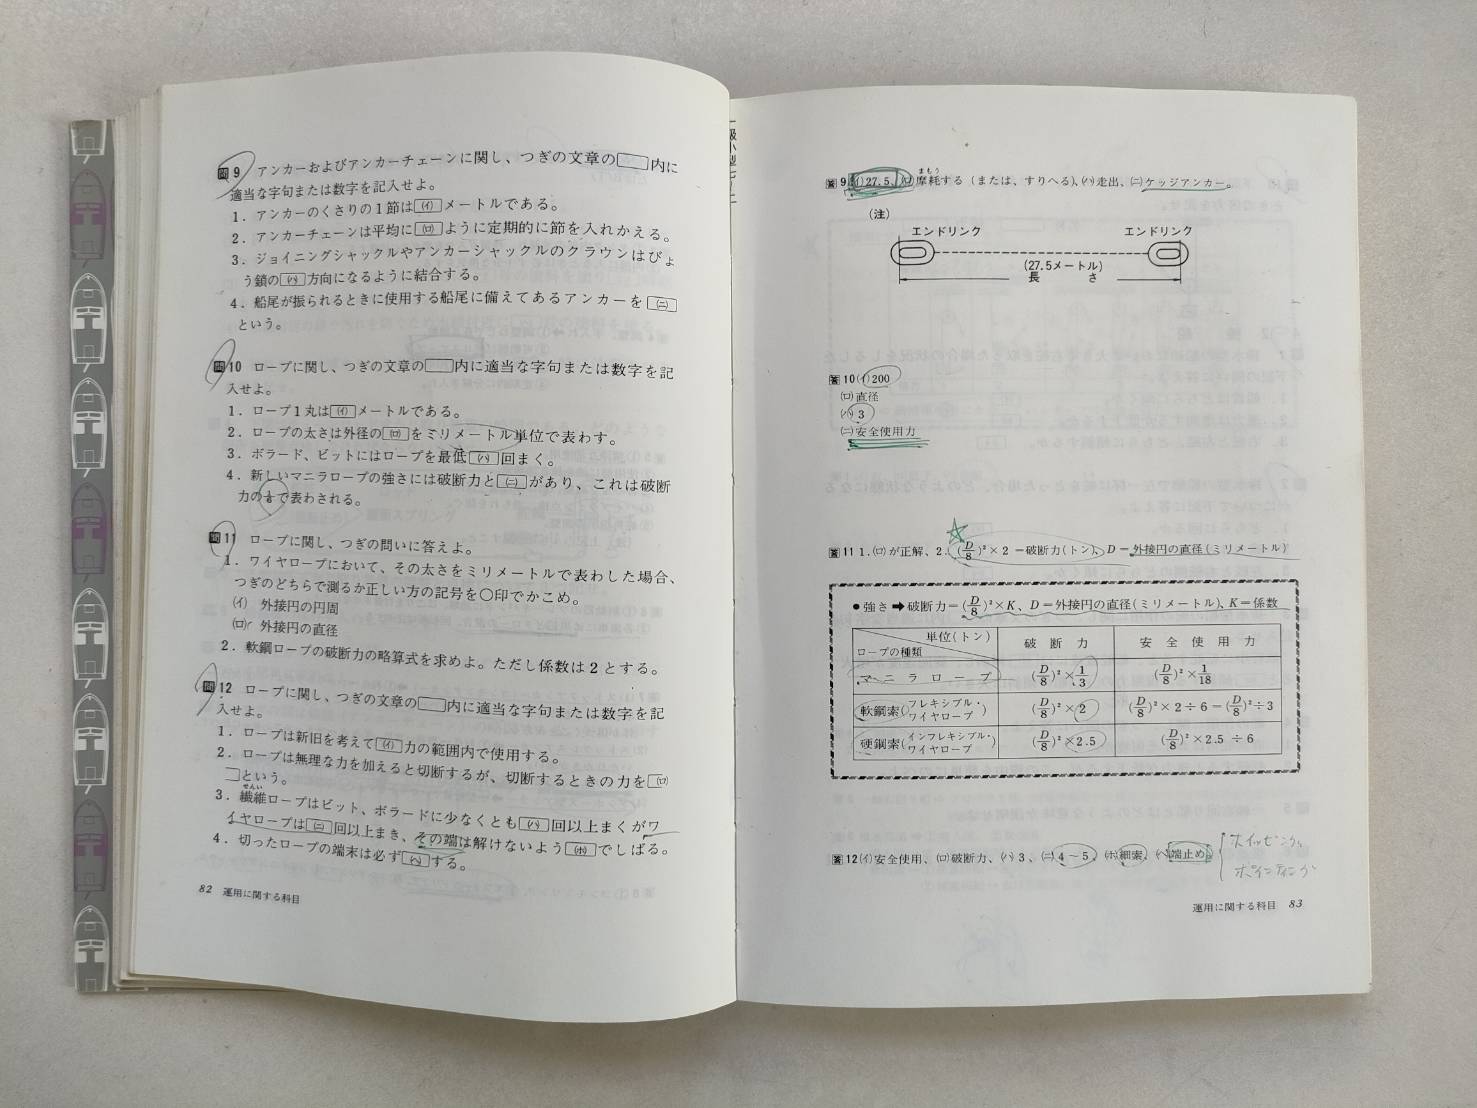 問9 アンカーおよびアンカーチェーンに関し、つぎの文章の 内に
適当な字句または数字を記入せよ。
1. アンカーのくさりの1節は(イ)メートルである。
2. アンカーチェーンは平均に(ロ)ように定期的に節を入れかえる。
3. ジョイニングシャックルやアンカーシャックルのクラウンはびょ
う鎖の(ハ)方向になるように結合する。
4. 船尾が振られるときに使用する船尾に備えてあるアンカーを(ニ)
という。
問10 ロープに関し、つぎの文章の 内に適当な字句または数字を記
入せよ。
1. ロープ1丸は(イ)メートルである。
2. ロープの太さは外径の(ロ)をミリメートル単位で表わす。
3. ボラード、ビットにはロープを最低(ハ)回まく。
4. 新しいマニラロープの強さには破断力と(ニ)があり、これは破断
力の1/6で表わされる。
問11 ロープに関し、つぎの問いに答えよ。
1. ワイヤロープにおいて、その太さをミリメートルで表わした場合、
つぎのどちらで測るか正しい方の記号を○印でかこめ。
(イ) 外接円の円周
(ロ) 外接円の直径
2. 軟鋼ロープの破断力の略算式を求めよ。ただし係数は2とする。
問12 ロープに関し、つぎの文章の 内に適当な字句または数字を記
入せよ。
1. ロープは新旧を考えて(イ)力の範囲内で使用する。
2. ロープは無理な力を加えると切断するが、切断するときの力を(ロ)
という。
せんい
3. 繊維ロープはビット、ボラードに少なくとも(ハ)回以上まくがワ
イヤロープは(ニ)回以上まき、その端は解けないよう(ホ)でしばる。
4. 切ったロープの端末は必ず(ヘ)する。
82 運用に関する科目
答9(イ)27.5、(ロ)摩耗する(または、すりへる)、(ハ)走出、(ニ)ケッジアンカー。
まもう
(注)
エンドリンク エンドリンク
(27.5メートル)
長 さ
答10(イ)200
(ロ)直径
(ハ)3
(ニ)安全使用力
答11 1.(ロ)が正解、2.(D/8)²×2=破断力(トン)、D=外接円の直径(ミリメートル)
●強さ➡破断力=(D/8)²×K、D=外接円の直径(ミリメートル)、K=係数
単位(トン) 破断力 安全使用力
ロープの種類
マニラロープ (D/8)²×1/3 (D/8)²×1/18
軟鋼索(フレキシブル・ワイヤロープ) (D/8)²×2 (D/8)²×2÷6=(D/8)²÷3
硬鋼索(インフレキシブル・ワイヤロープ) (D/8)²×2.5 (D/8)²×2.5÷6
答12(イ)安全使用、(ロ)破断力、(ハ)3、(ニ)4~5、(ホ)細索、(ヘ)端止め。
ホイッピング
ポインティング
運用に関する科目 83